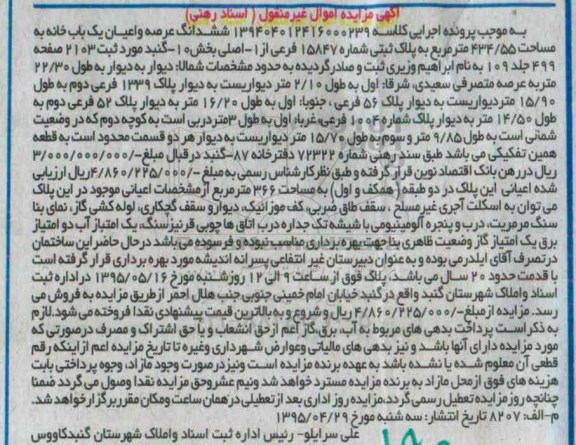 آگهی مزایده اموال غیرمنقول ( اسناد رهنی)
به موجب پرونده اجرایی کلاسه ۱۳۹۴۰۴۰۱۲۴۱۶۰۰۰۲۳۹ ششدانگ عرصه واعیان یک باب خانه به
مساحت ۴۳۴/۵۵ مترمربع به پلاک ثبتی شماره ۱۵۸۴۷ فرعی از ۱-اصلی بخش۱۰-گنبد مورد ثبت ۲۱۰۳ صفحه
۴۹۹ جلد ۱۰۹ به نام ابراهیم وزیری ثبت و صادرگردیده به حدود مشخصات شمالا: دیوار به دیوار به طول ۲۲/۳۰
متر به عرصه متصرفی سعیدی، شرقا: اول به طول ۲/۱۰ متر دیواریست به دیوار پلاک ۱۳۳۹ فرعی دوم به طول
۱۵/۹۰ متر دیواریست به دیوار پلاک ۵۶ فرعی ، جنوبا: اول به طول ۱۶/۲۰ متر به دیوار پلاک ۵۲ فرعی دوم به
طول ۱۴/۵۰ متر به دیوار پلاک شماره ۱۰۰۴ فرعی، غربا: اول به طول ۳متردربی است به کوچه دوم که در وضعیت
شمالی است به طول ۹/۸۵ متر و سوم به طول ۱۵/۷۰ متر دیواریست به دیوار هر دو قسمت محدود است به قطعه
همین تفکیکی می باشد طبق سند رهنی شماره ۷۲۳۲۲ دفترخانه ۸۷-گنبد در قبال مبلغ-/۳/۰۰۰/۰۰۰/۰۰۰
ریال در رهن بانک اقتصاد نوین قرار گرفته و طبق نظر کارشناس رسمی به مبلغ-/۴/۸۶۰/۲۲۵/۰۰۰ریال ارزیابی
شده اعیانی این پلاک در دو طبقه (همکف و اول) به مساحت ۳۶۶ مترمربع از مشخصات اعیانی موجود در این پلاک
می توان به اسکلت آجری غیرمسلح ، سقف طاق ضربی، کف موزائیک، دیوار و سقف گچکاری، لوله کشی گاز، نمای بنا
سنگ مرمریت، درب و پنجره آلومینیومی با شیشه تک جداره درب اتاق ها چوبی قرنیزسنگ، یک امتیاز آب دو امتیاز
برق یک امتیاز گاز وضعیت ظاهری بنا جهت بهره برداری مناسب نبوده و فرسوده می باشد در حال حاضر این ساختمان
در تصرف آقای ایلدرمی بوده و به عنوان دبیرستان غیر انتفاعی پسرانه اندیشه مورد بهره برداری قرار گرفته است
با قدمت حدود ۲۰ سال می باشد. پلاک فوق از ساعت ۹ الی ۱۲ روز شنبه مورخ ۱۳۹۵/۰۵/۱۶ در اداره ثبت
اسناد و املاک شهرستان گنبد واقع در گنبد خیابان امام خمینی جنوبی جنب هلال احمر از طریق مزایده به فروش می
رسد. مزایده از مبلغ-/۴/۸۶۰/۲۲۵/۰۰۰ ریال و شروع و به بالاترین قیمت پیشنهادی نقدا فروخته می شود.لازم
به ذکر است پرداخت بدهی های مربوط به آب، برق،گاز اعم از حق انشعاب و یا حق اشتراک و مصرف درصورتی که
مورد مزایده دارای آنها باشد و نیز بدهی های مالیاتی وعوارض شهرداری وغیره تا تاریخ مزایده اعم ازاینکه رقم
قطعی آن معلوم شده یا نشده باشد به عهده برنده مزایده است ونیزدرصورت وجود مازاد، وجوه پرداختی بابت
هزینه های فوق ازمحل مازاد به برنده مزایده مسترد خواهد شد ونیم عشروحق مزایده نقدا وصول می گردد ضمنا
چنانچه روز مزایده تعطیل رسمی گردد، مزایده روز اداری بعد ازتعطیلی در همان ساعت ومکان مقرر برگزار خواهد شد.
م-الف: ۸۲۰۷ تاریخ انتشار: سه شنبه مورخ ۱۳۹۵/۰۴/۲۹
علی سرایلو- رئیس اداره ثبت اسناد واملاک شهرستان گنبدکاووس